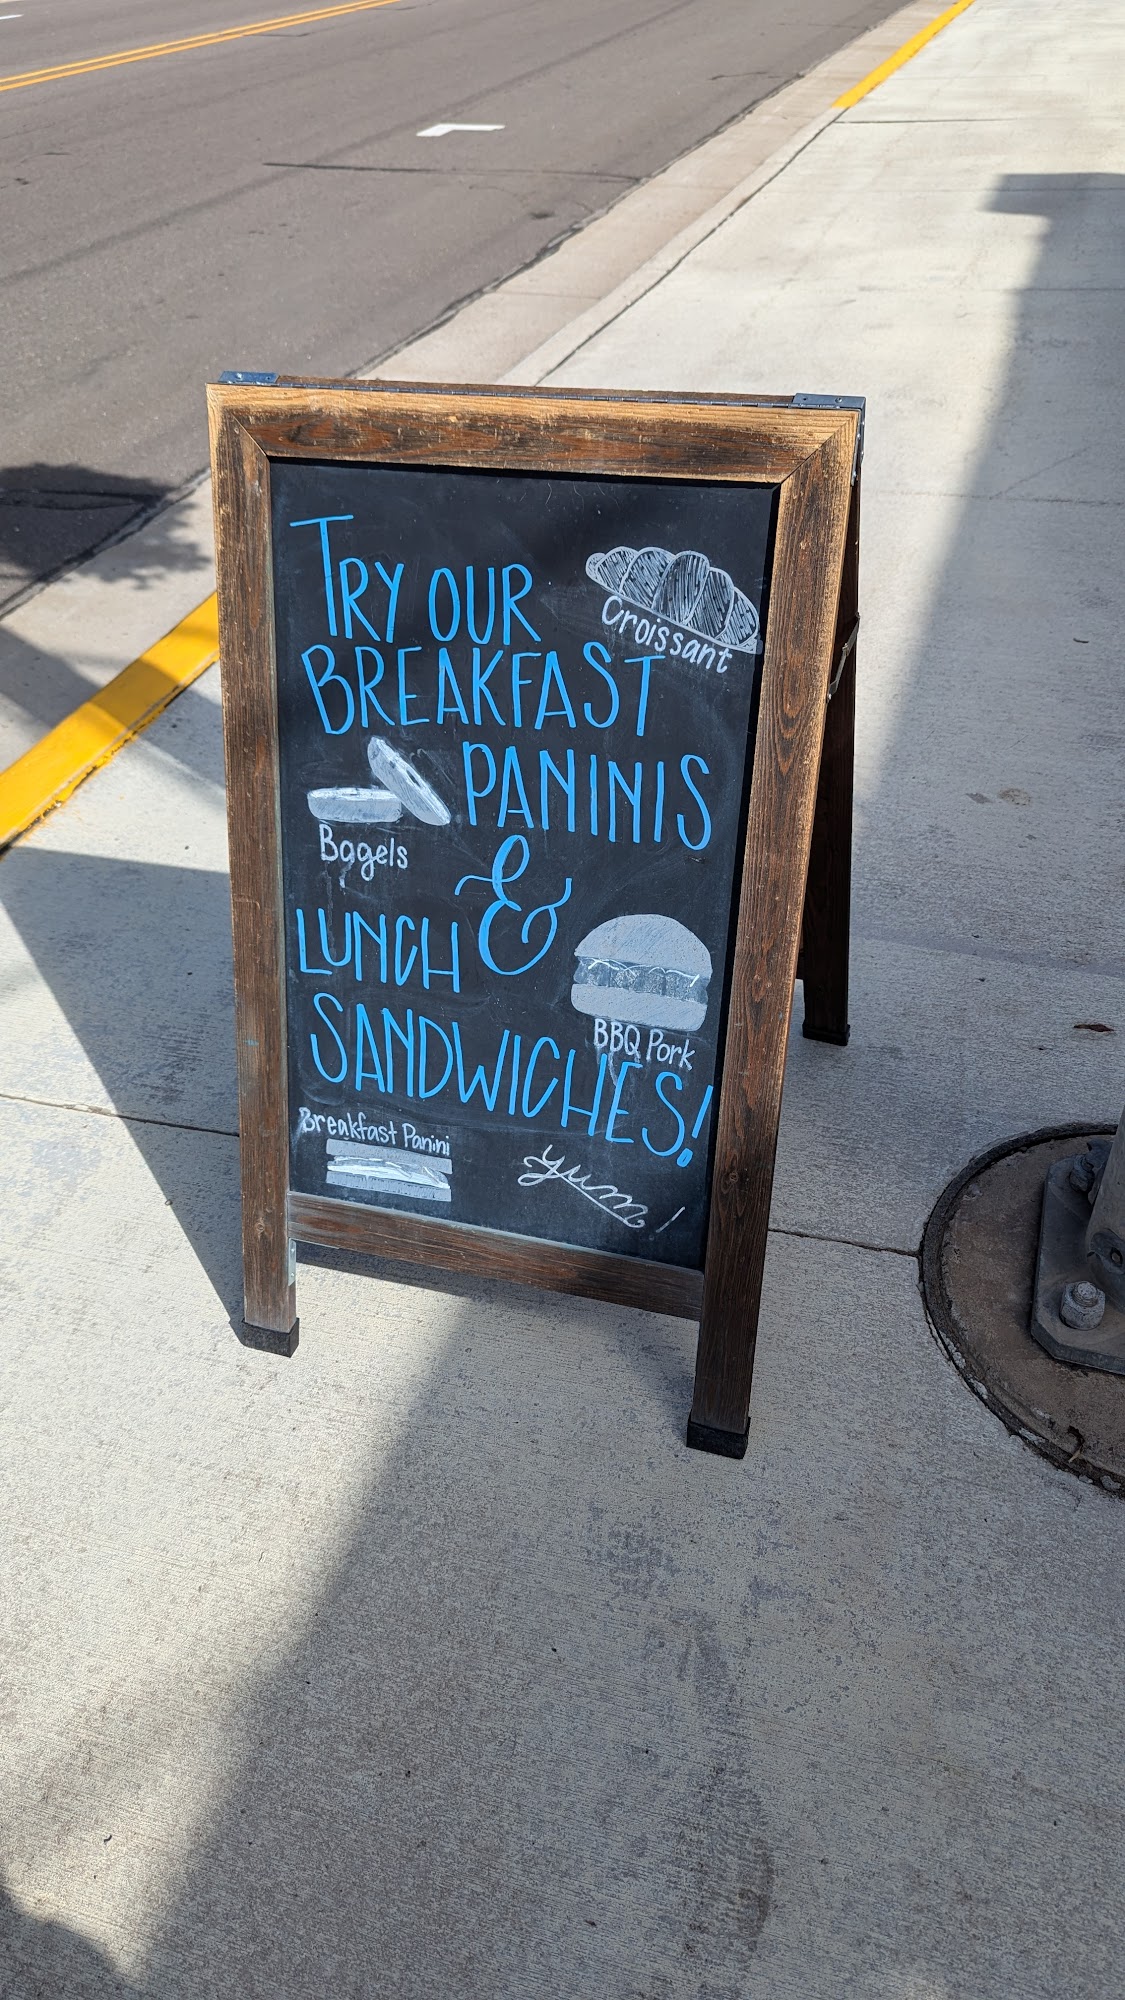 TRY OUR
Croissant
BREAKFAST
PANINIS
Bagels
&
LUNCH
BBQ Pork
SANDWICHES!
Breakfast Panini
yum!